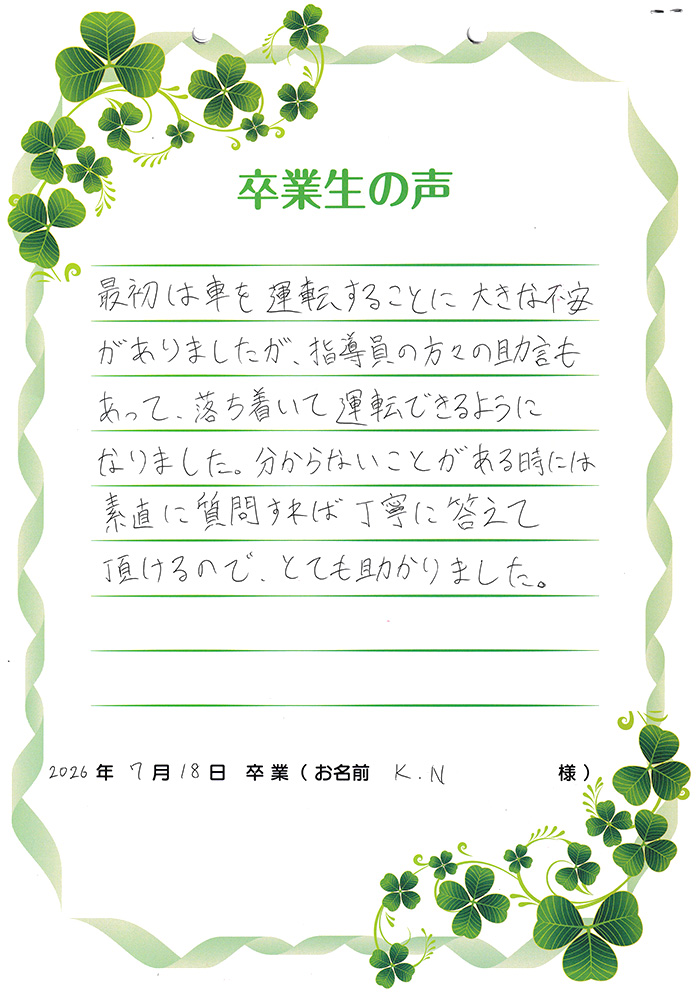 卒業生の声
最初は車を運転することに大きな不安
がありましたが、指導員の方々の助言も
あって、落ち着いて運転できるように
なりました。分からないことがある時には
素直に質問すれば丁寧に答えて
頂けるので、とても助かりました。
2026年 7月18日 卒業(お名前 K.N 様)